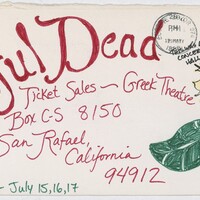 ful Dead
Ticket Sales ~ Greek Theatre
Box C-S 8150
San Rafael,
California
94912
- July 15,16,17
PM
CONCERT
HALL